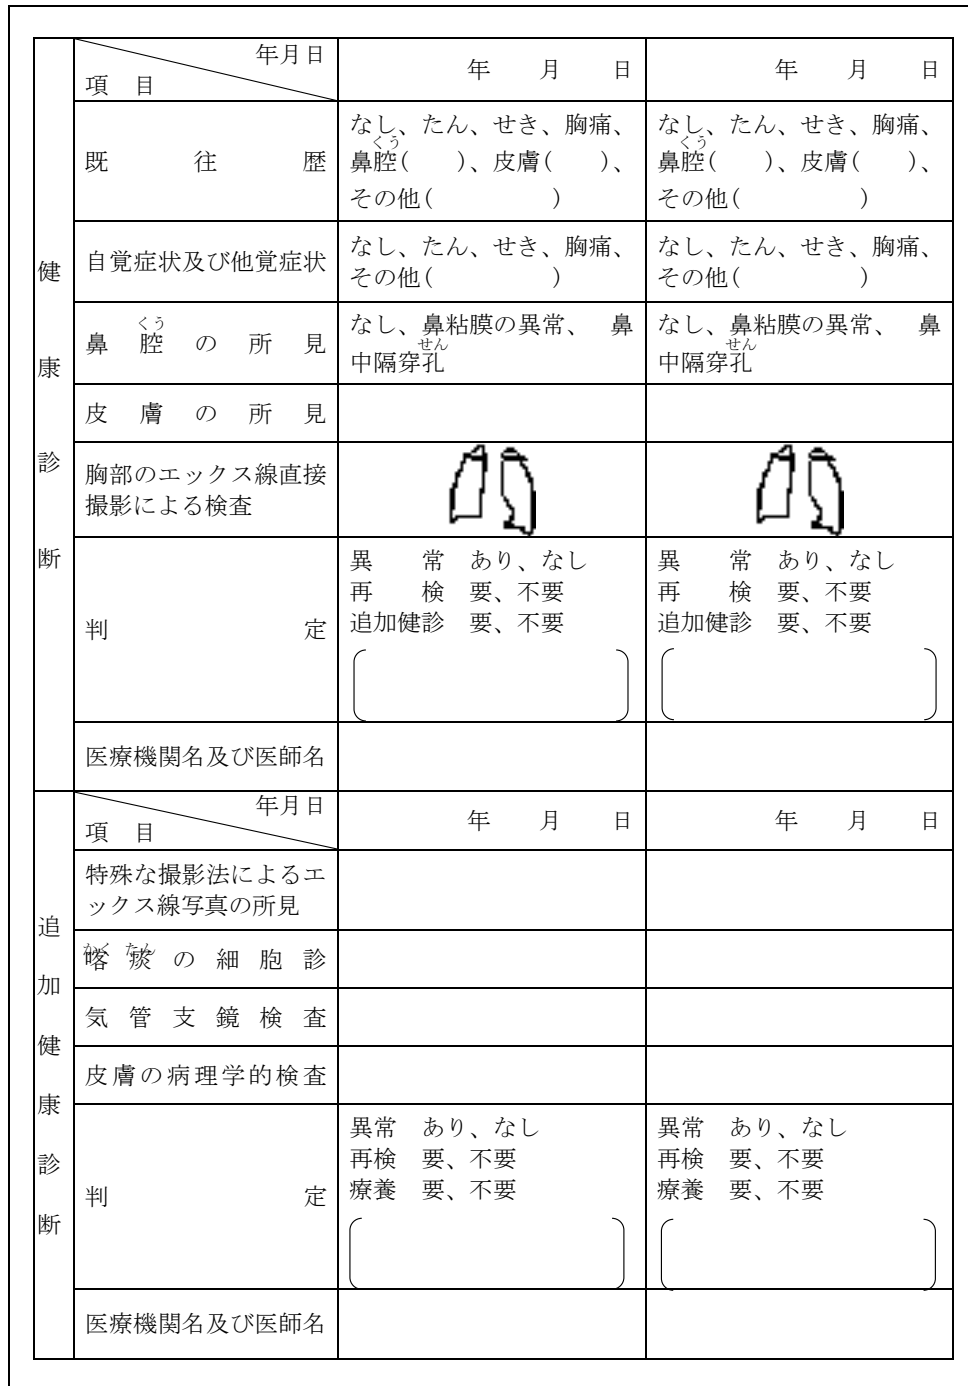 健康診断
年月日
項　目
年　　月　　日
年　　月　　日
既　往　歴
なし、たん、せき、胸痛、
くう
鼻腔(　　)、皮膚(　　)、
その他(　　　　　)
なし、たん、せき、胸痛、
くう
鼻腔(　　)、皮膚(　　)、
その他(　　　　　)
自覚症状及び他覚症状
なし、たん、せき、胸痛、
その他(　　　　　)
なし、たん、せき、胸痛、
その他(　　　　　)
くう
鼻腔の所見
なし、鼻粘膜の異常、　鼻
せん
中隔穿孔
なし、鼻粘膜の異常、　鼻
せん
中隔穿孔
皮膚の所見
胸部のエックス線直接
撮影による検査
判　定
異　　常　あり、なし
再　　検　要、不要
追加健診　要、不要
異　　常　あり、なし
再　　検　要、不要
追加健診　要、不要
医療機関名及び医師名
追加健康診断
年月日
項　目
年　　月　　日
年　　月　　日
特殊な撮影法によるエ
ックス線写真の所見
かく たん
喀痰の細胞診
気管支鏡検査
皮膚の病理学的検査
判　定
異常　あり、なし
再検　要、不要
療養　要、不要
異常　あり、なし
再検　要、不要
療養　要、不要
医療機関名及び医師名